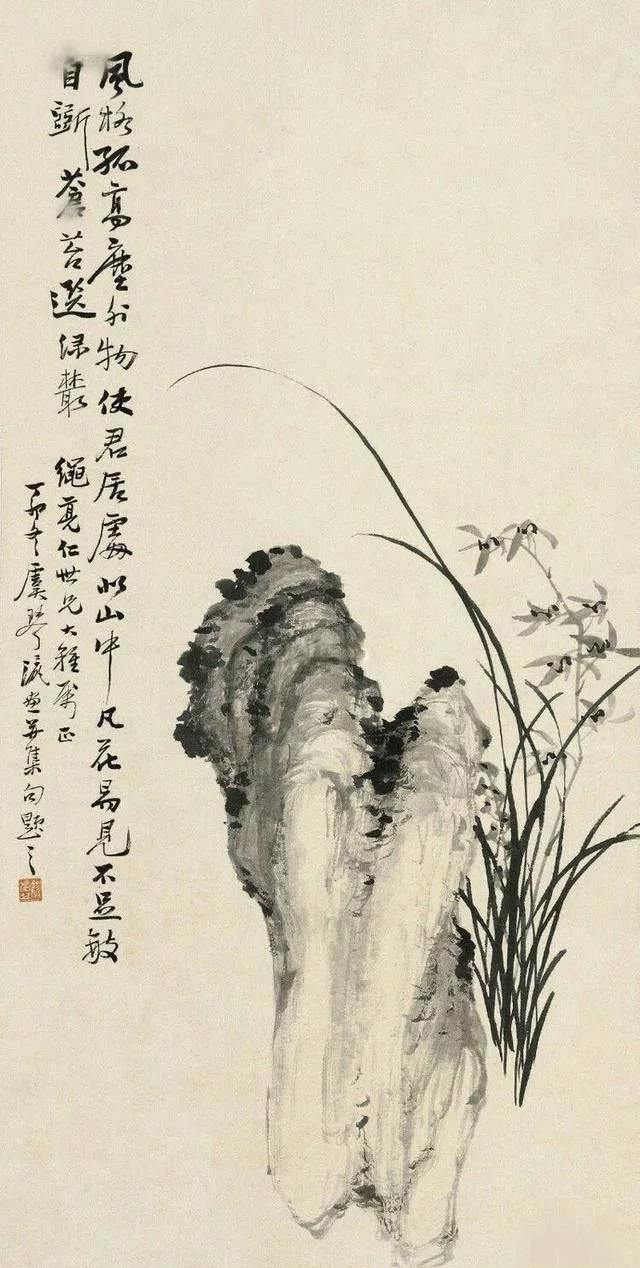 風格孤高塵外物使君居處似山中凡花易見不足數
自斸蒼苔選綠叢 繩亮仁世兄大雅屬正
丁卯冬虞琴瀛畫并集句題之